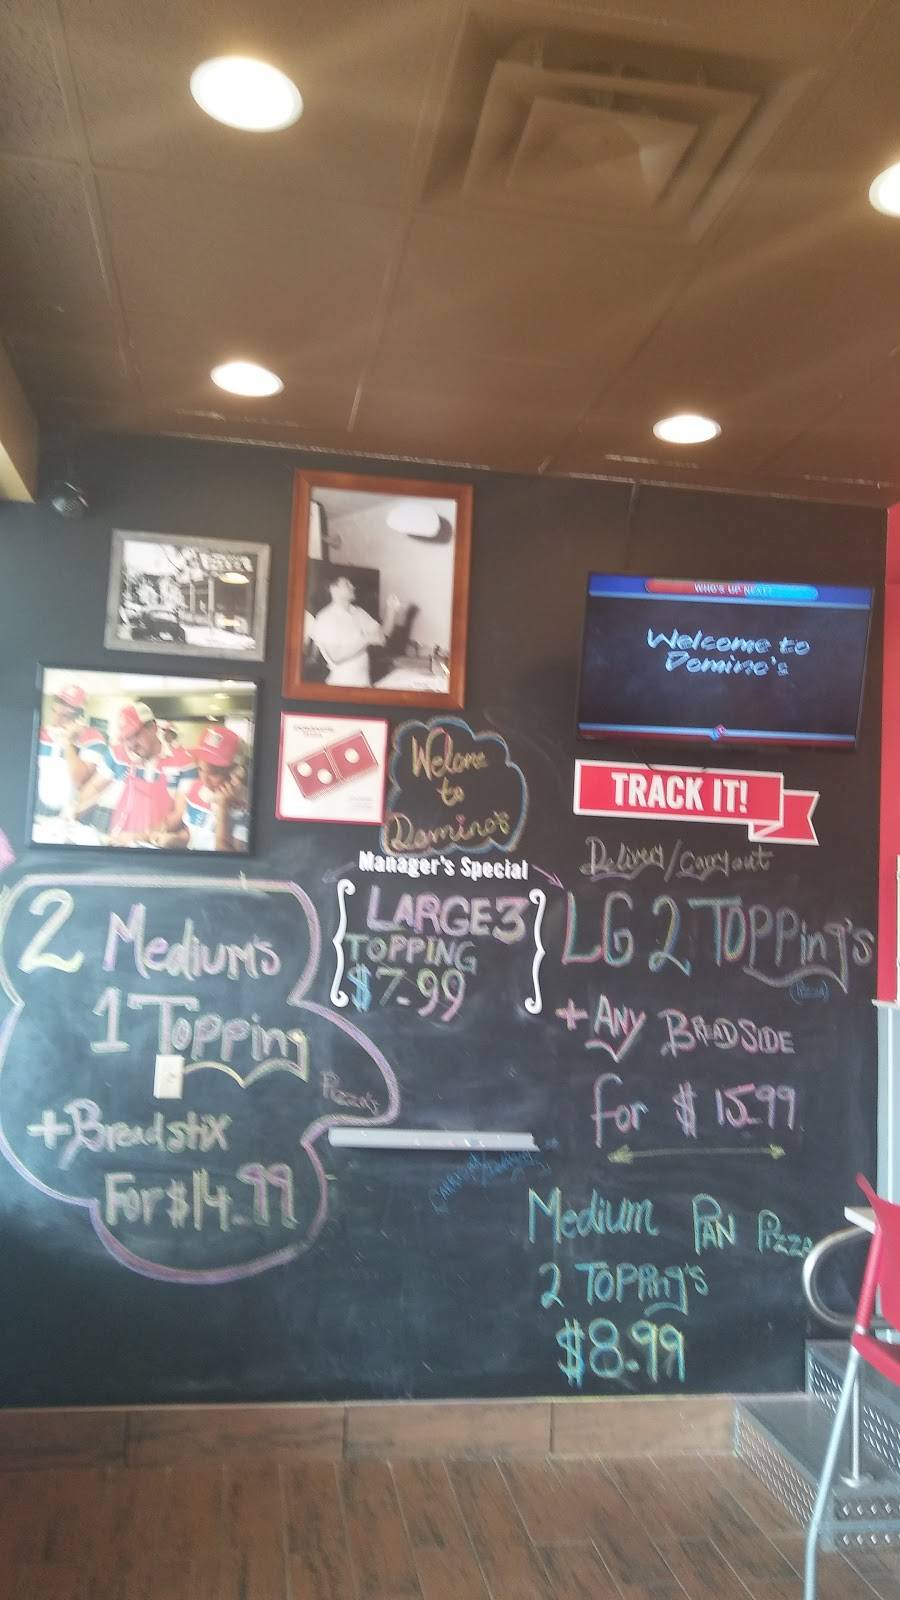 WHO'S UP NEXT?
Welcome to
Domino's
TRACK IT!
Welcome
to
Domino's
Manager's Special
LARGE 3
TOPPING
$7.99
2 Medium's
1 Topping
Pizza's
+Breadstix
For $14.99
Delivery/Carryout
LG 2 TOPPing's
+ ANY BREADSIDE
for $15.99
Medium PAN Pizza
2 TOPPing's
$8.99